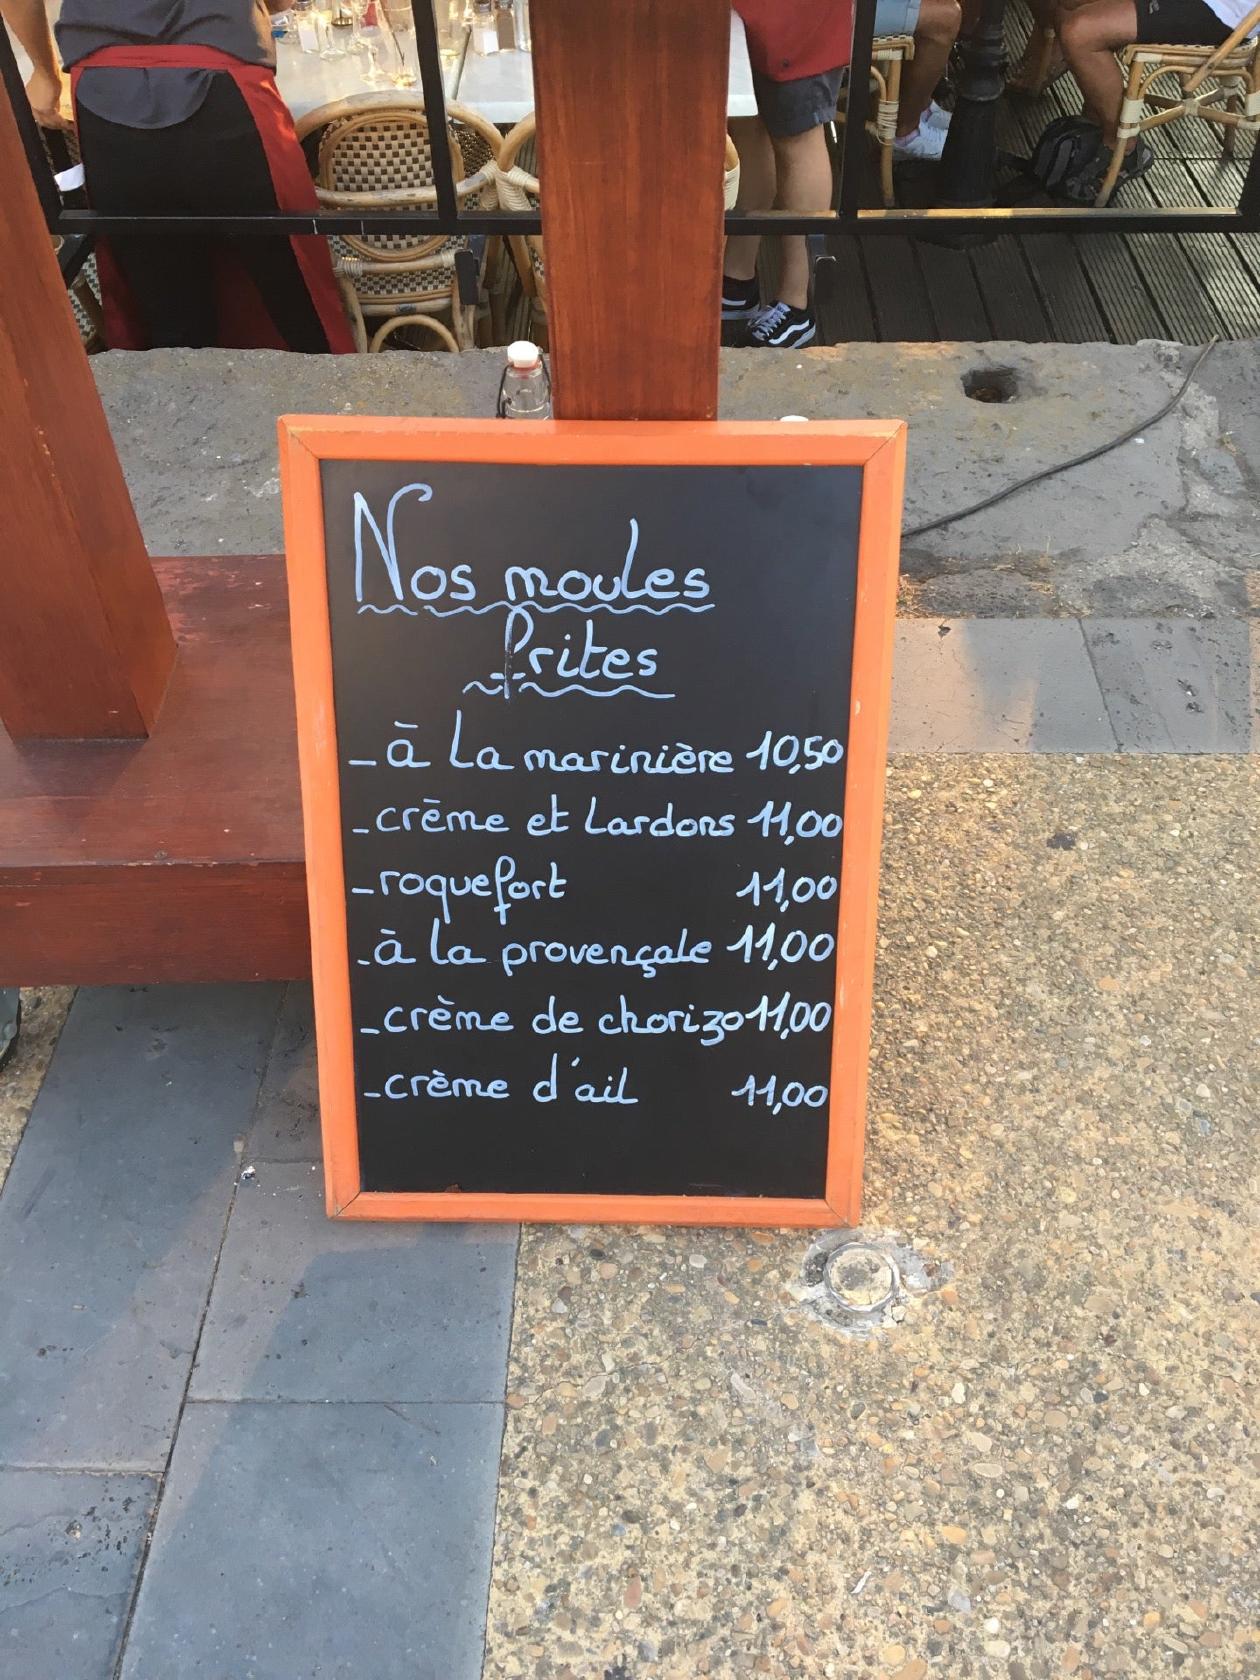 Nos moules
frites
- à la marinière 10,50
- crème et lardons 11,00
- roquefort 11,00
- à la provençale 11,00
- crème de chorizo 11,00
- crème d'ail 11,00